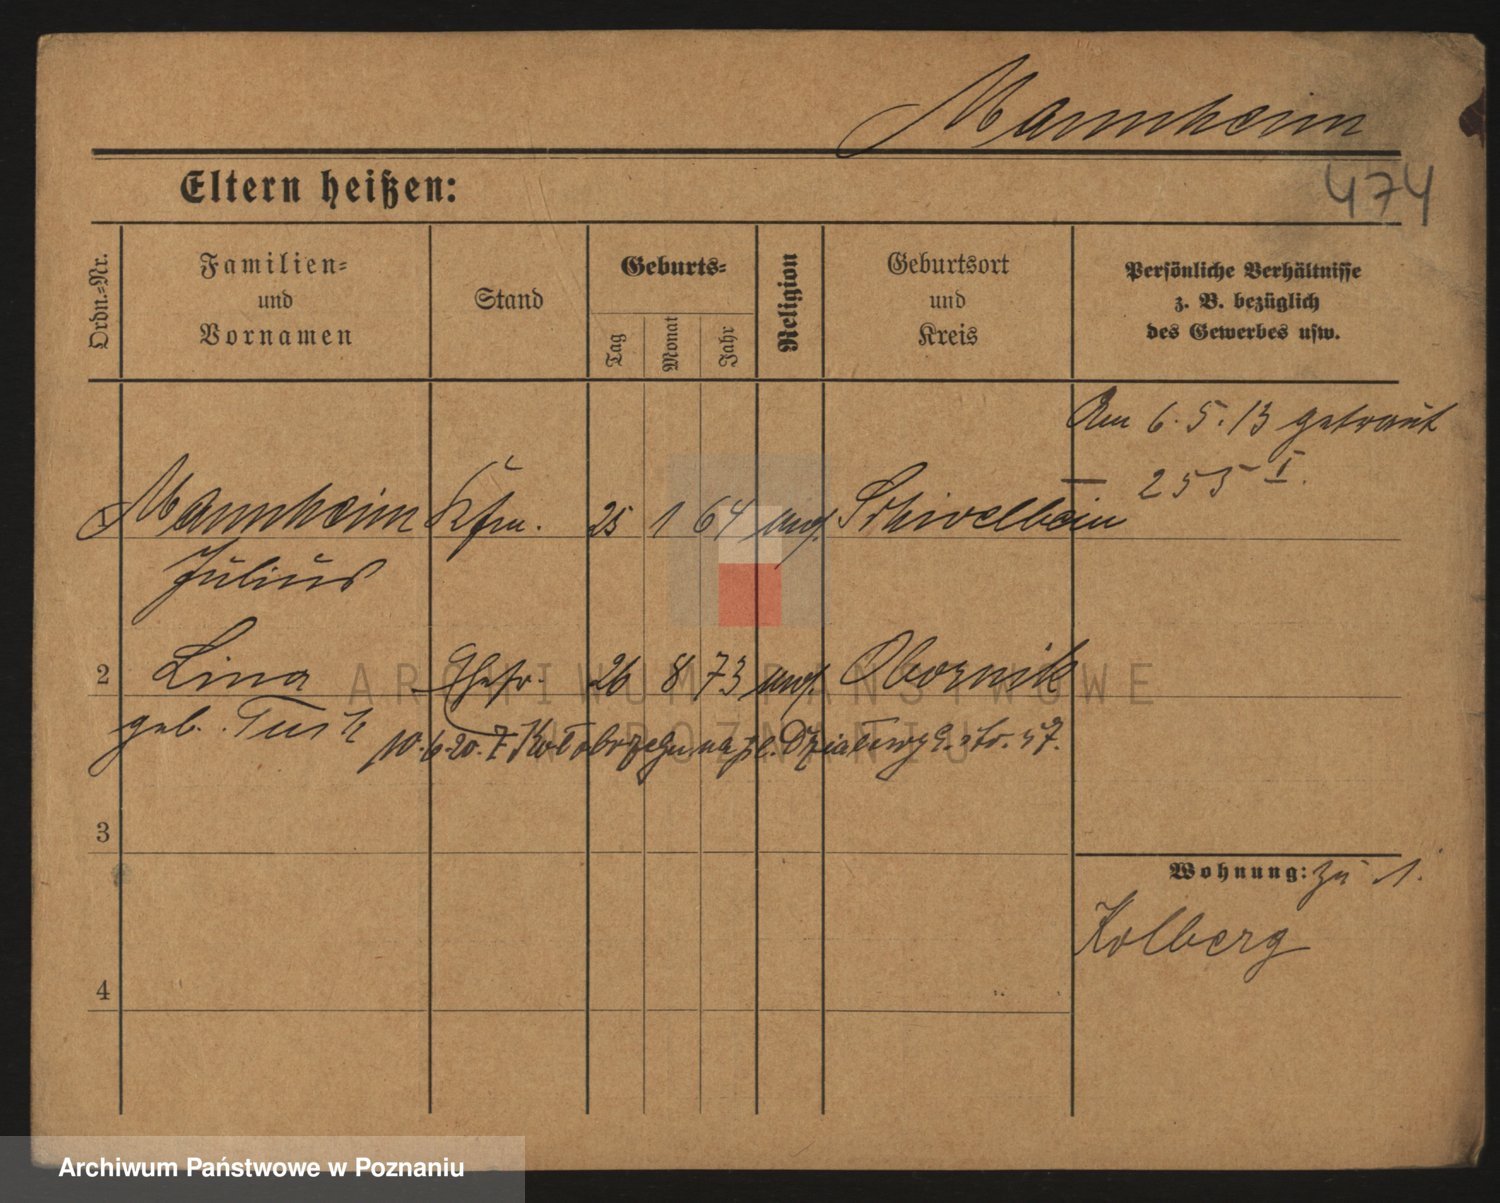 Mannheim
474
Eltern heißen:
Ordn.=Nr.
Familien=
und
Vornamen
Stand
Geburts=
Tag
Monat
Jahr
Religion
Geburtsort
und
Kreis
Persönliche Verhältnisse
z. B. bezüglich
des Gewerbes usw.
Am 6.5.13 getraut
255 I.
Mannheim Kfm. 25 1 64 mos. Schivelbein
Julius
2 Lina Ehefr. 26 8 73 mos. Obornik
geb. Tuch
10.6.20. z
3
Wohnung: zu 1.
Kolberg
4
ARCHIWUM PAŃSTWOWE
W POZNANIU
Archiwum Państwowe w Poznaniu